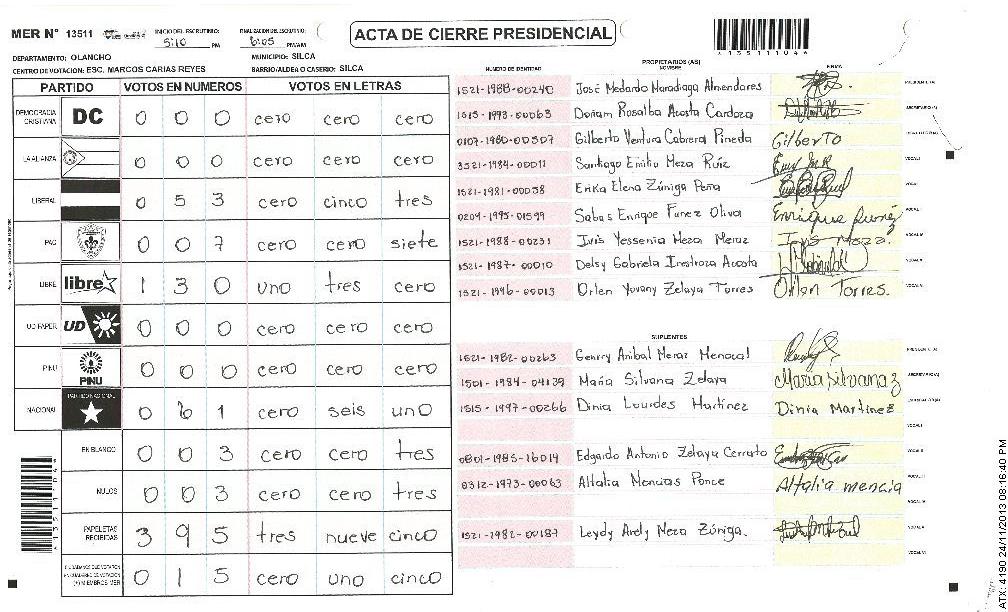 MER N° 13511
INICIO DEL ESCRUTINIO: 5:10 PM
FINALIZACION DEL ESCRUTINIO: 6:05 PM/AM
ACTA DE CIERRE PRESIDENCIAL
DEPARTAMENTO: OLANCHO
MUNICIPIO: SILCA
CENTRO DE VOTACION: ESC. MARCOS CARIAS REYES
BARRIO/ALDEA O CASERIO: SILCA
PARTIDO VOTOS EN NUMEROS VOTOS EN LETRAS
DEMOCRACIA CRISTIANA DC 0 0 0 cero cero cero
LA ALIANZA 0 0 0 cero cero cero
LIBERAL 0 5 3 cero cinco tres
PAC 0 0 7 cero cero siete
LIBRE libre 1 3 0 uno tres cero
UD FAPER UD 0 0 0 cero cero cero
PINU PINU 0 0 0 cero cero cero
NACIONAL PARTIDO NACIONAL 0 6 1 cero seis uno
EN BLANCO 0 0 3 cero cero tres
NULOS 0 0 3 cero cero tres
PAPELETAS RECIBIDAS 3 9 5 tres nueve cinco
CIUDADANOS QUE VOTARON EN CUADERNO DE VOTACION (*) MIEMBROS MER 0 1 5 cero uno cinco
NUMERO DE IDENTIDAD PROPIETARIOS (AS) NOMBRE FIRMA
1521-1988-00240 José Medardo Maradiaga Almendares PRESIDENTE(A)
1615-1993-00063 Doriam Rosalba Acosta Cardoza SECRETARIO(A)
0107-1980-00507 Gilberto Ventura Cabrera Pineda Gilberto
3521-1984-00011 Santiago Emilio Meza Ruíz VOCAL I
1521-1981-00058 Erika Elena Zúniga Peña
0209-1995-01599 Sabas Enrique Funez Oliva Enrrique Funéz
1521-1988-00231 Ivis Yessenia Meza Meraz Ivis Meza.
1521-1987-00010 Delsy Gabriela Inestroza Acosta
1521-1996-00013 Orlen Yovany Zelaya Torres Orlen Torres.
SUPLENTES
1521-1982-00263 Genrry Anibal Meraz Menocal PRESIDENTE(A)
1501-1984-04139 María Silvana Zelaya Maria Silvana Z SECRETARIO(A)
1515-1997-00266 Dinia Lourdes Martínez Dinia Martinez
0801-1985-16014 Edgardo Antonio Zelaya Cerrato
0312-1973-00063 Altalia Mencias Ponce Altalia mencia
1521-1982-00187 Leydy Arely Meza Zúniga.
*13511044*
ATX: 4190 24/11/2013 08:16:40 PM